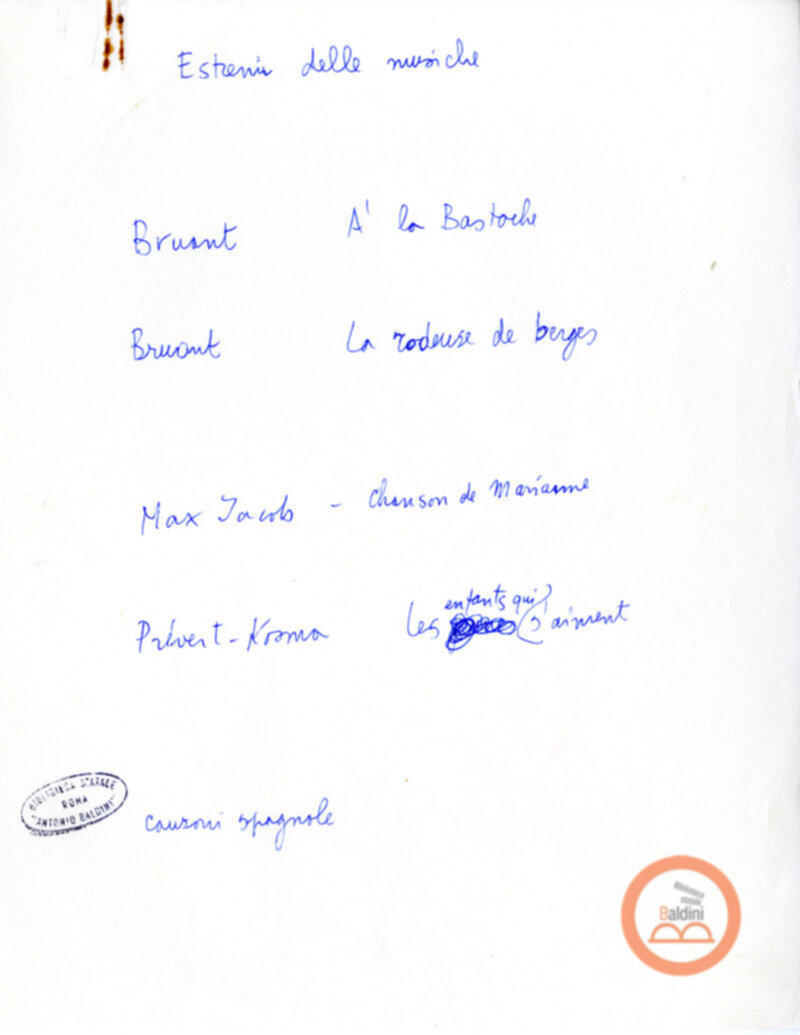 Estremi delle musiche
Bruant A' la Bastoche
Bruant La rodeuse de berges
Max Jacob - Chanson de Marianne
Prévert-Kosma Les enfants qui s'aiment
BIBLIOTECA STATALE
ROMA
"ANTONIO BALDINI"
canzoni spagnole
Biblioteca
statale
Baldini